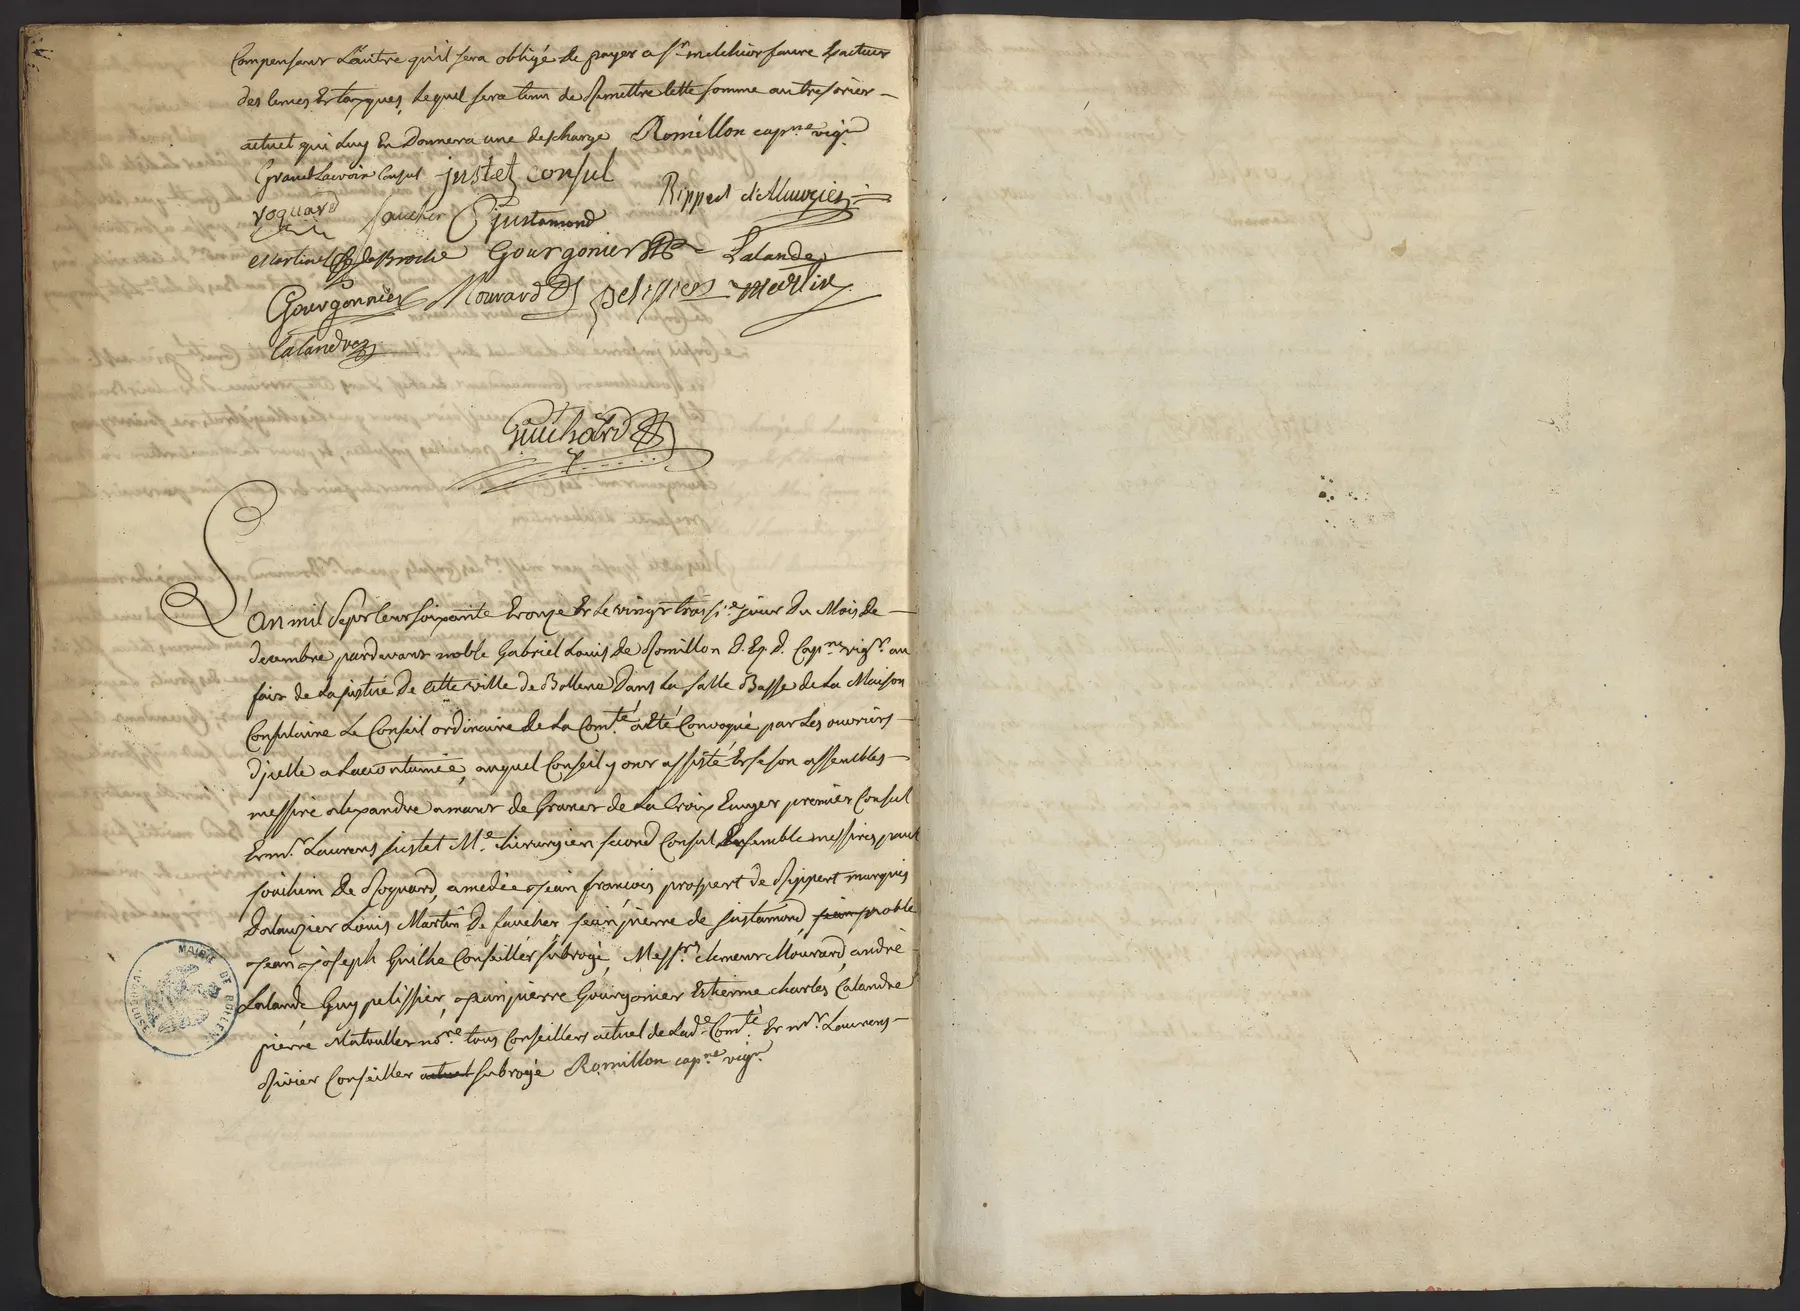 Compensant L'autre qu'il sera obligé de payer a Sr melchior faure Exacteur
des lenes Et larques, lequel sera tenu de Remettre cette somme au tresorier
actuel qui luy En Donnera une descharge Romillon capne vigr
Consul justet consul
roquard faucher justamond Rippert d'Alauzier
Martinel deBroche Gourgonier Lalande
Gourgonnier Mourard pelissier Martin
Calandre
Guichard
L'an mil Sept Cent soixante Et onze Et Le vingt trois.e jour Du Mois de
decembre pardevant noble Gabriel Louis de Romillon D. Ey. D. Capne vigr au
fait de La justice De cette ville de Bollene Dans La salle Basse de La Maison
Consulaire Le Conseil ordinaire de La Comté a eté Convoqué par Les ouvriers
D'jcelle a Laccoutumée, auquel Conseil y ont assisté Et se son assemblés
messire alexandre amant de Granet de La Croix premier Consul
Et mr. Laurens justet Me. chirurgien second Consul Ensemble messires paul
joachim De Roquard, amedée jean françois prospert de Rippert marquis
Dalauzier Louis Martin De faucher jean pierre de justamond, jean noble
jean joseph Guilhe Conseiller subrogé, Messrs. Clement Mourard, andré
Lalande Guy pelissier, jean pierre Gourgonier Estienne charles Calandre
pierre nore. tous Conseillers actuel de Lade. Comté Et mr. Laurens
Rivier Conseiller actuel subrogé Romillon capne vigr
MAIRIE DE BOLLENE
VAUCLUSE